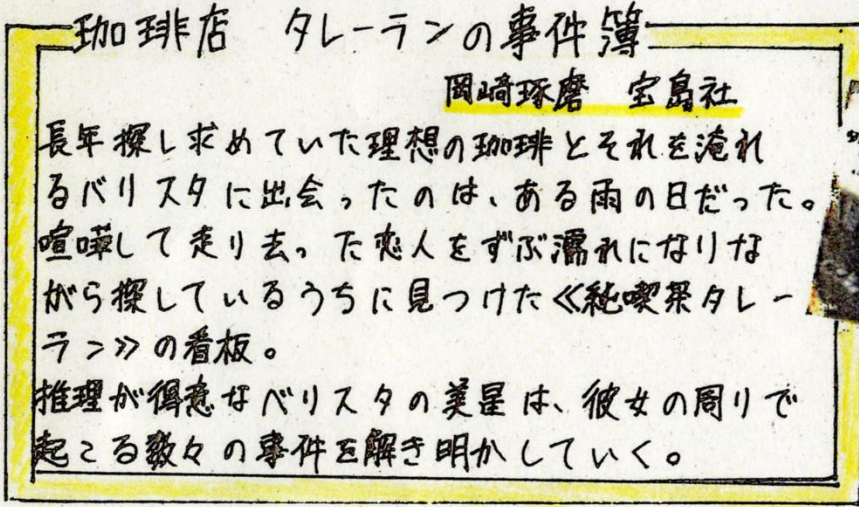 珈琲店 タレーランの事件簿
岡崎琢磨 宝島社
長年探し求めていた理想の珈琲とそれを淹れ
るバリスタに出会ったのは、ある雨の日だった。
喧嘩して走り去った恋人をずぶ濡れになりな
がら探しているうちに見つけた≪純喫茶タレー
ラン≫の看板。
推理が得意なバリスタの美星は、彼女の周りで
起こる数々の事件を解き明かしていく。